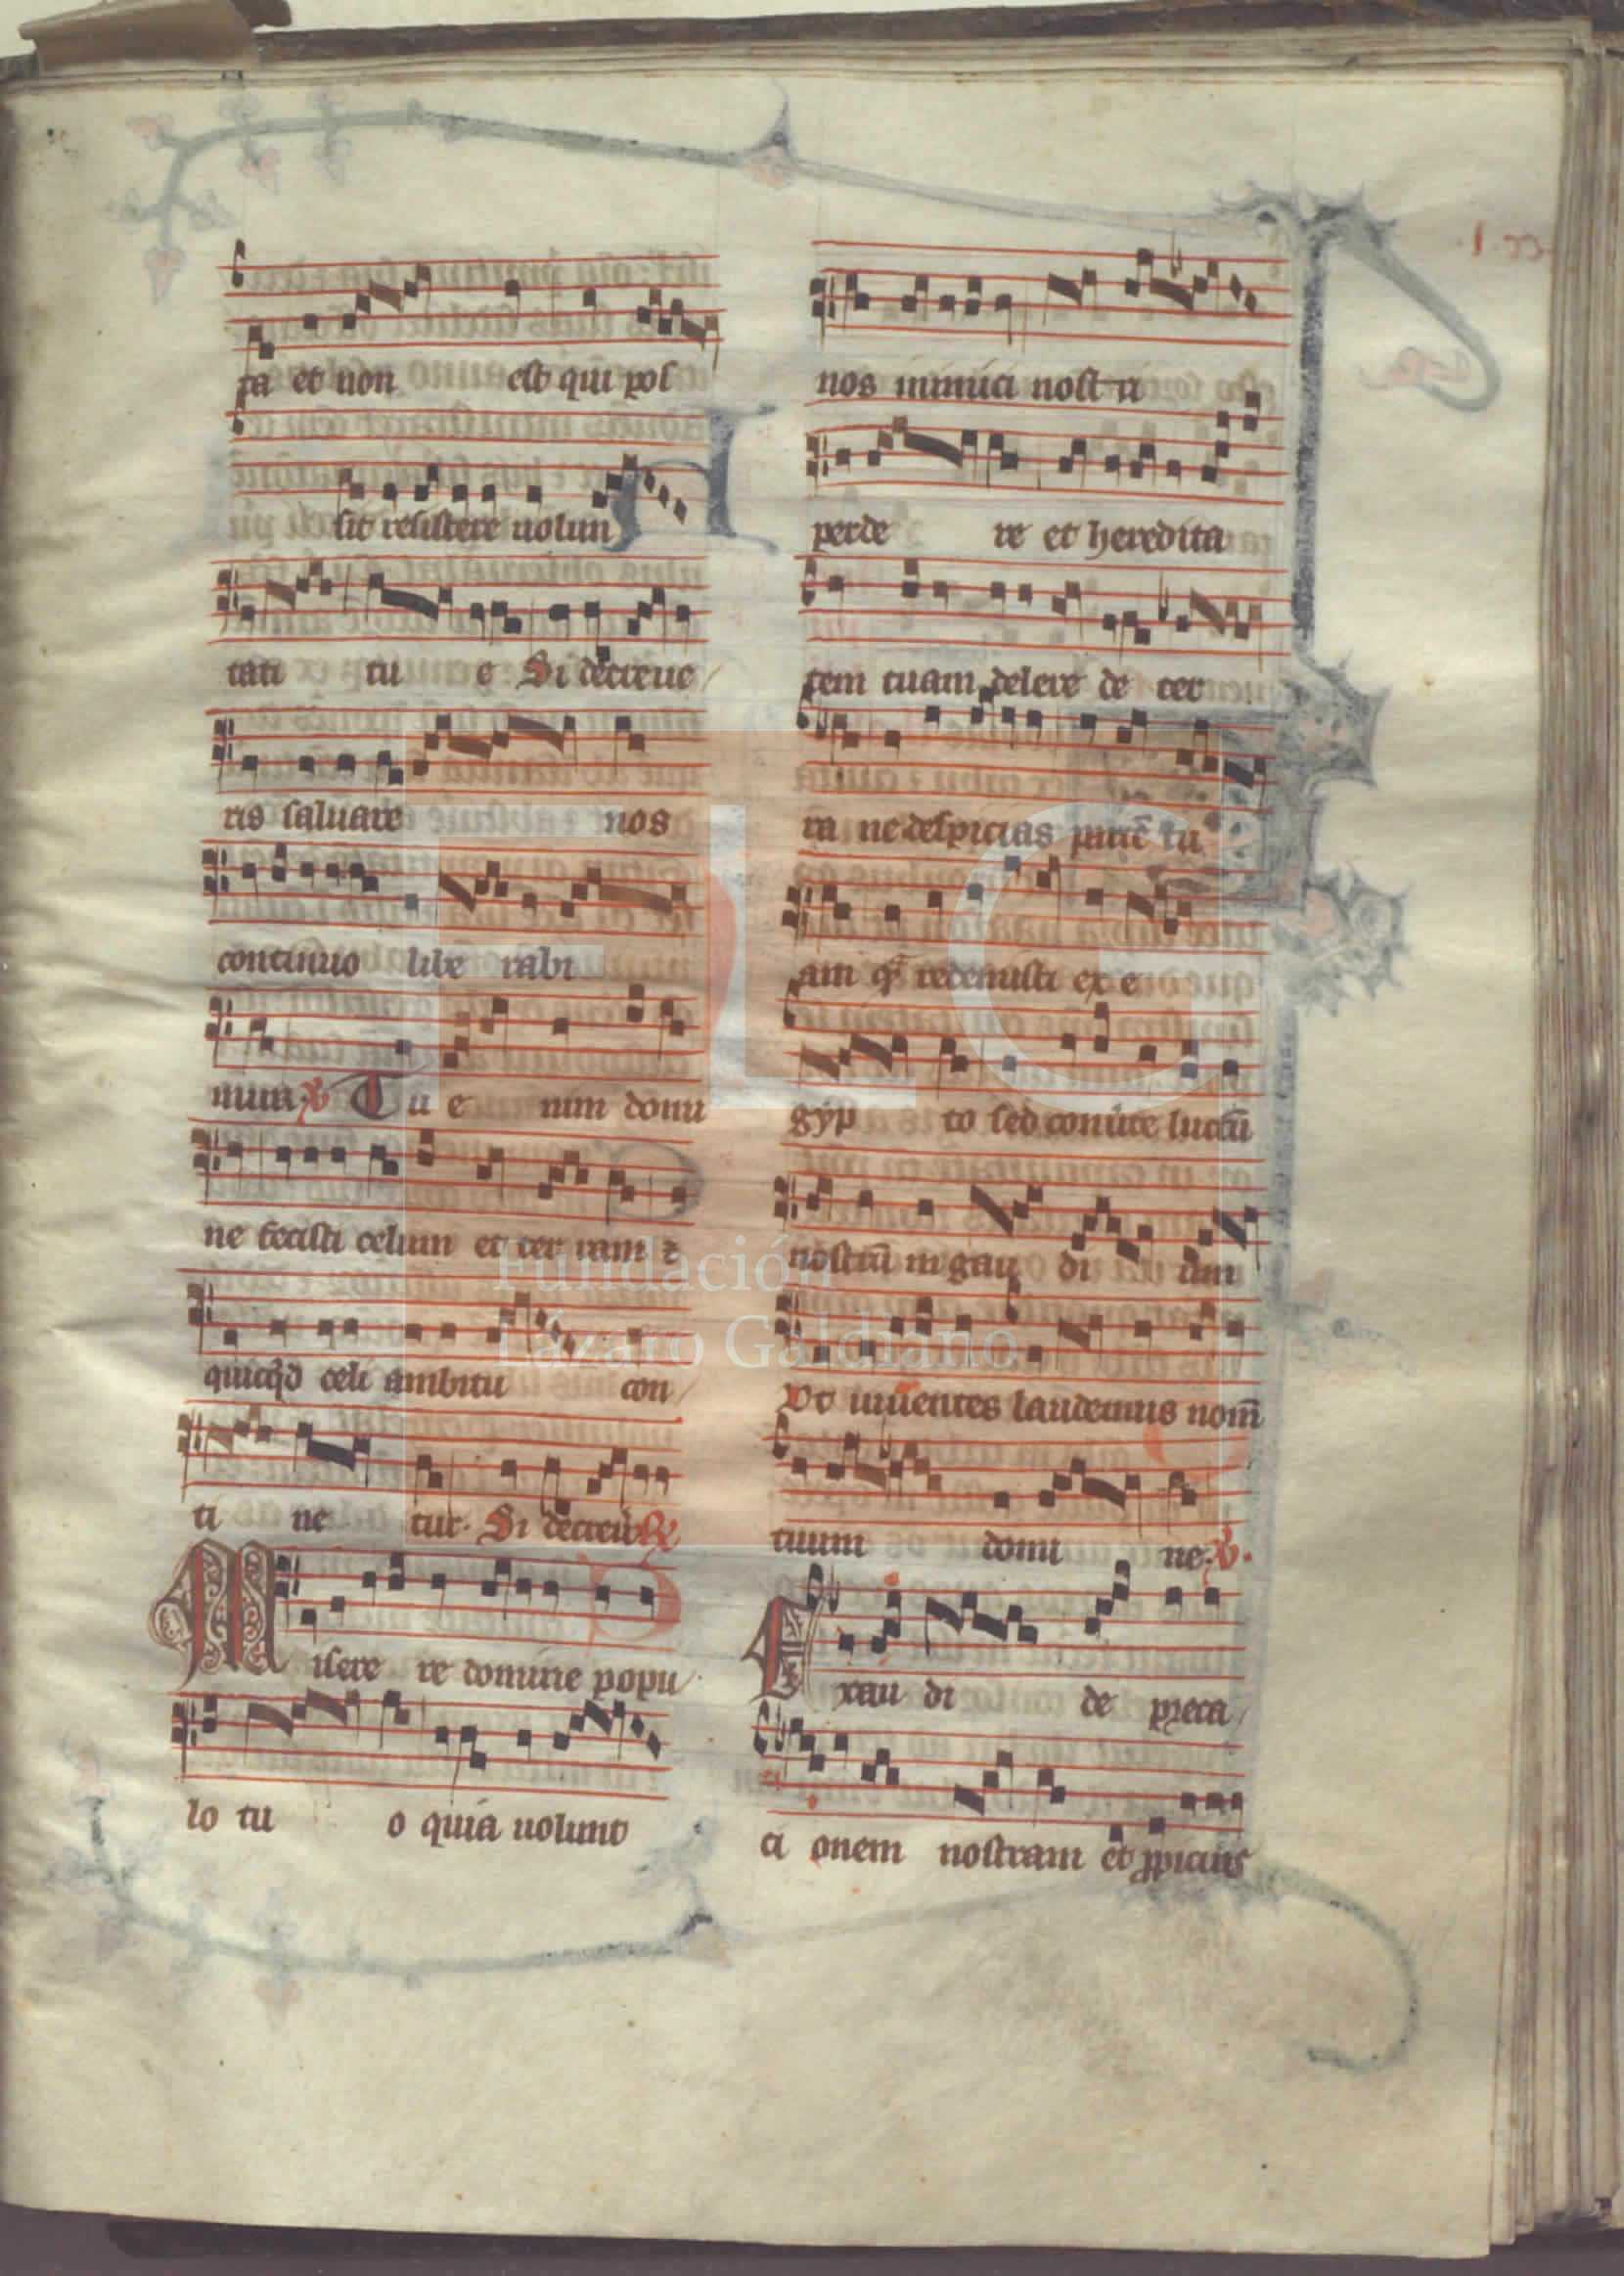 ta et non est qui pos
sit resistere uolun
tati tu e Si decreue
ris saluare nos
continuo libe rabi
mur. V Tu e nim domi
ne fecisti celum et ter ram ⁊
quicq̄d celi ambitu con
ti ne tur. Si decreū. R
Misere re domine popu
lo tu o quia uolunt
nos inimici nostri
perde re et heredita
tem tuam delere de cer
ta ne despicias partē tu
am q̄ redemisti ex e
gyp to sed conuerte luctū
nostrū in gau di um
Vt uiuentes laudemus nom̄
tuum domi ne. V.
Exau di de preca
ci onem nostram et ꝓpicius
Fundación
Lázaro Galdiano
FLG